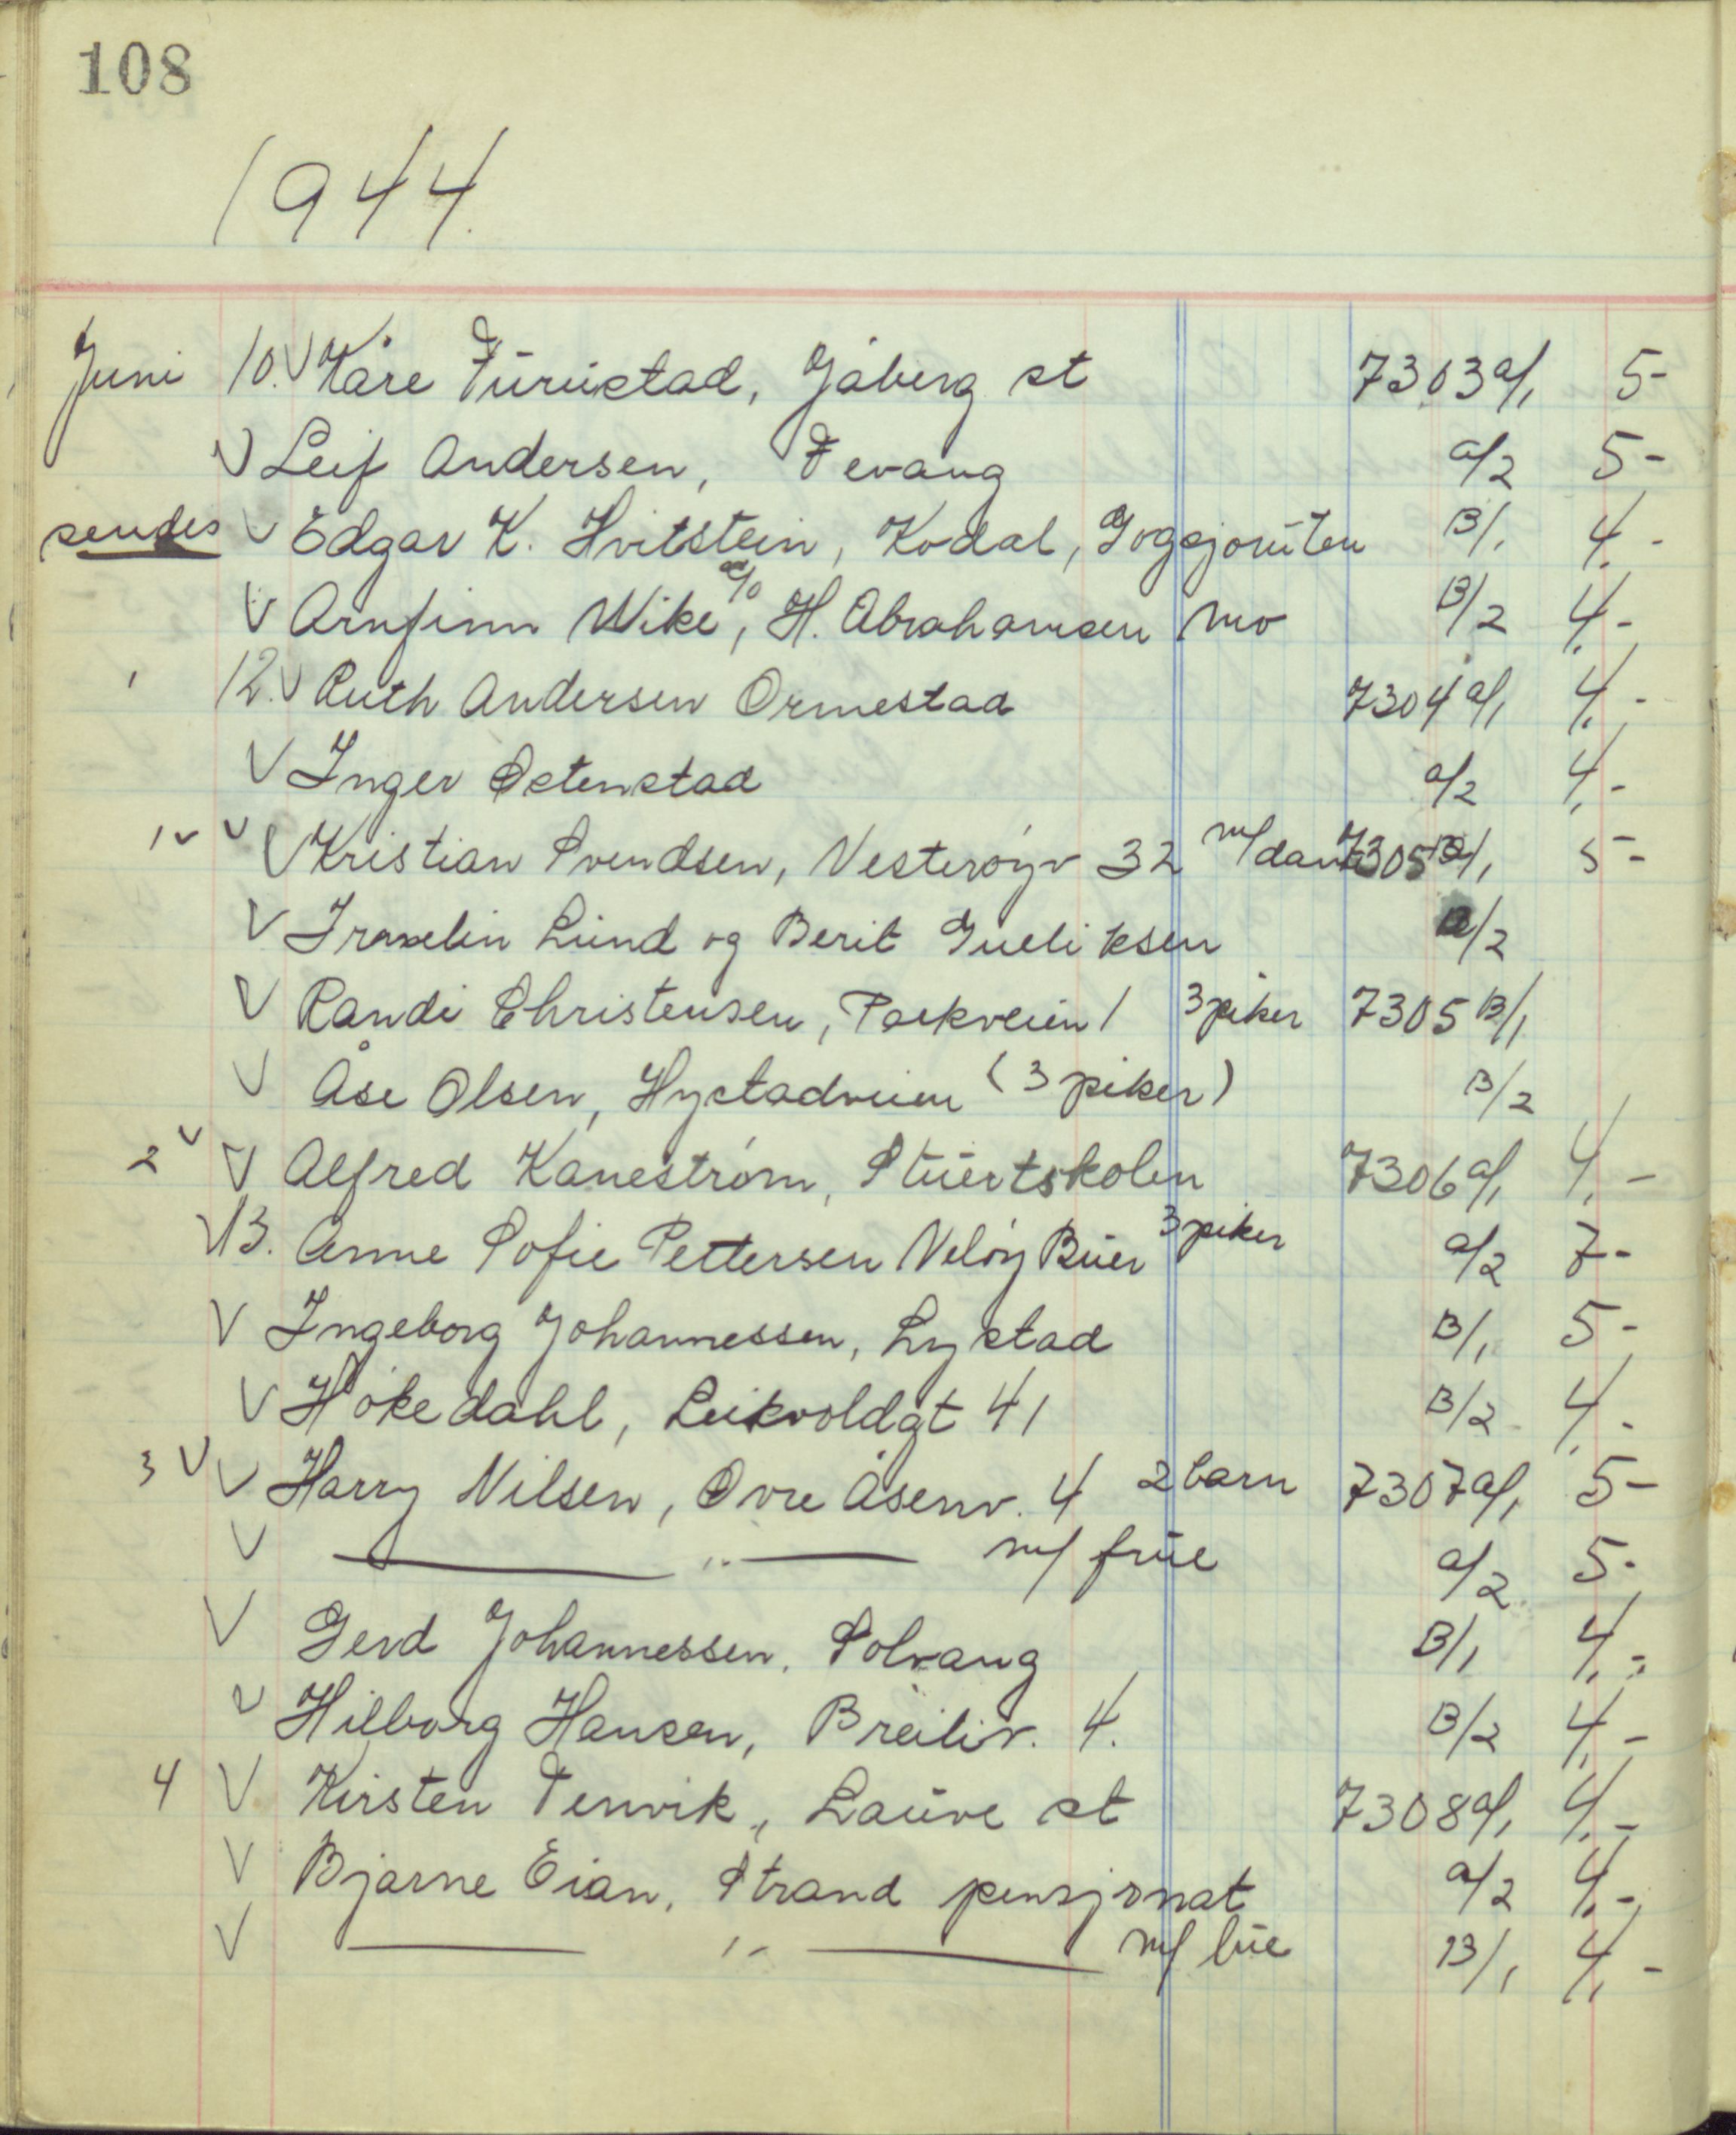 108
1944.
Juni 10. V Kåre Furustad, Jåberg st 7303 a/1 5-
V Leif Andersen, Tevang a/2 5-
sendes V Edgar K. Hvitstein, Kodal, Gogsjoruten B/1 4.-
V Arnfinn Wike, c/o H. Abrahamsen Mo B/2 4.-
12. V Ruth Andersen Ormestad 7304 a/1 4.-
V Inger Østenstad a/2 4.-
1 v v V Kristian Svendsen, Vesterøyv 32 m/dame 7305 a/1 5-
V Lund og Berit a/2
V Randi Christensen, Parkveien 1 3 piker 7305 B/1
V Åse Olsen, Hystadveien (3 piker) B/2
2 v V Alfred Kanestrøm, Stuertskolen 7306 a/1 4.-
V 13. Anne Sofie Pettersen Veløy Buer 3 piker a/2 7-
V Ingeborg Johannessen, Lystad B/1 5-
V Høkedahl, Leikvoldgt 41 B/2 4.-
3 V V Harry Nilsen, Øvre Åsenv. 4 2 barn 7307 a/1 5-
V — ,, — m/ frue a/2 5-
V Gerd Johannessen, Solvang B/1 4.-
V Hilborg Hansen, Breiliv. 4. B/2 4.-
4 V Kirsten Tenvik, Lauve st 7308 a/1 4.-
V Bjarne Eian, Strand pensjonat a/2 4.-
V — ,, — m/ lue B/1 4.-